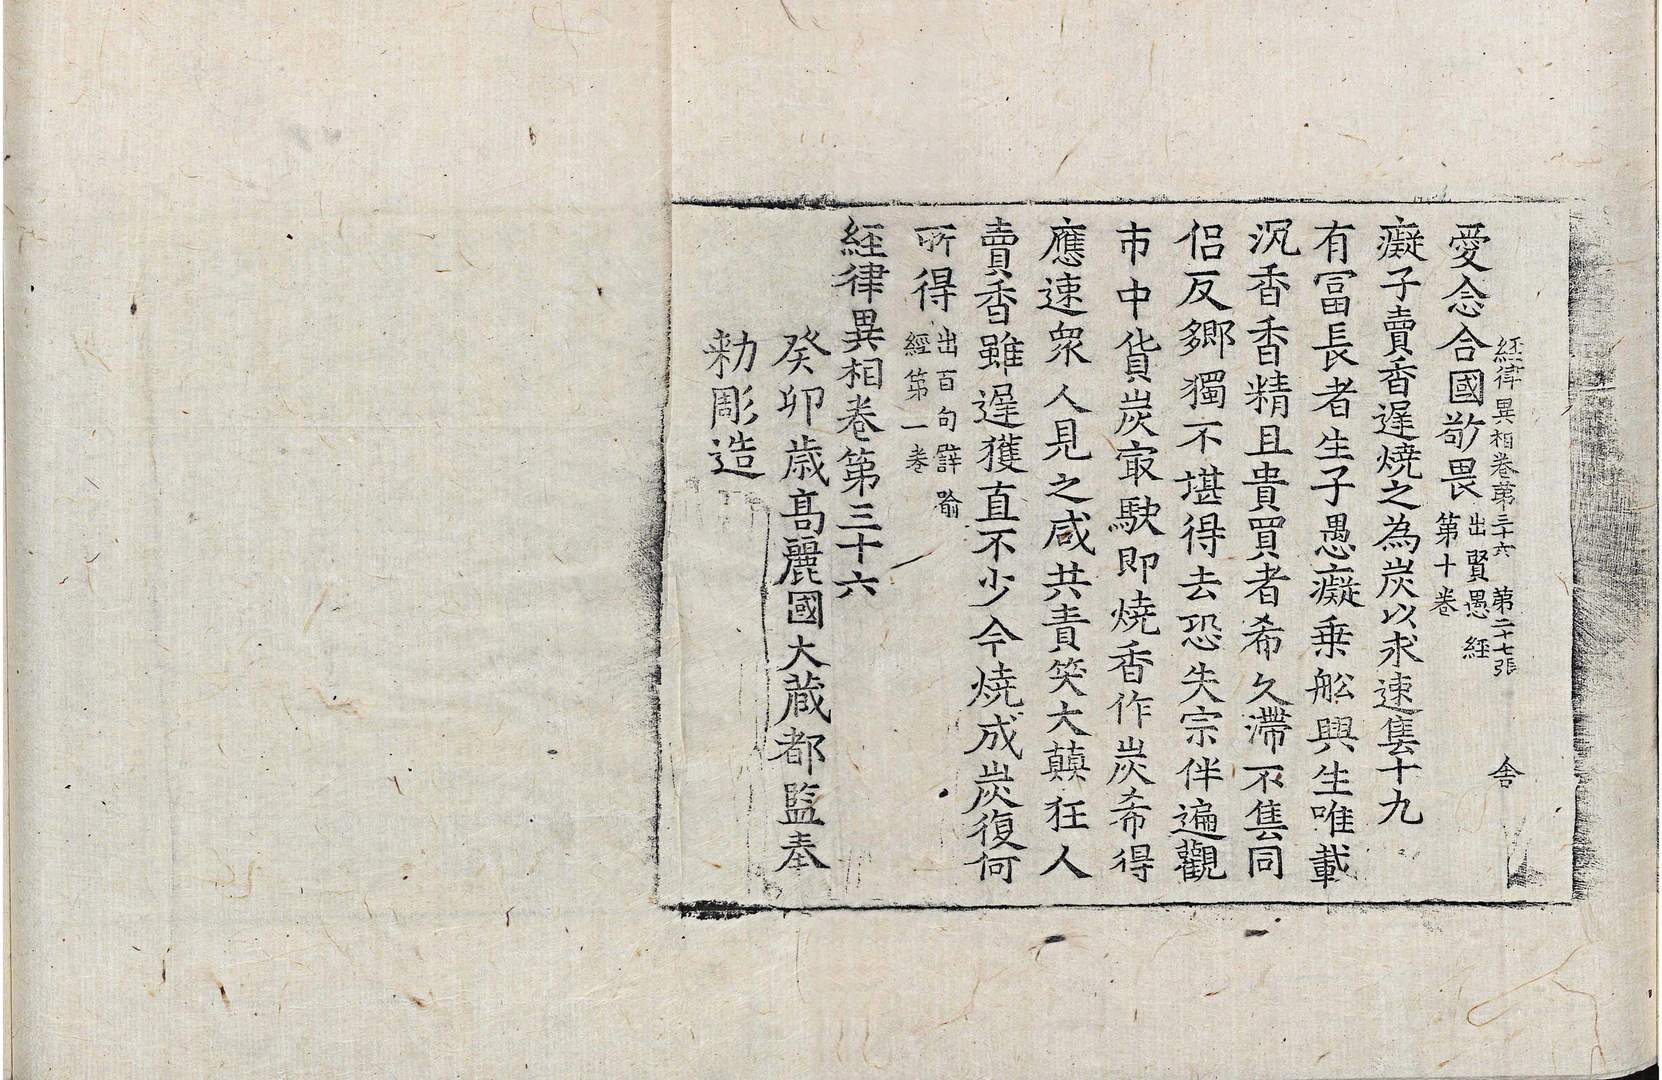 經律異相卷第三十六 第二十七張 舎
愛念合國敬畏出賢愚經第十卷
癡子賣香遲燒之為炭以求速售十九
有冨長者生子愚癡乗舩興生唯載
沉香香精且貴買者希久滯不售同
侣反鄉獨不堪得去恐失宗伴遍觀
市中貨炭㝡駛即燒香作炭希得
應速衆人見之咸共責笑大蘱狂人
賣香雖遅獲直不少今燒成炭復何
所得出百句譬喻經第一卷
經律異相卷第三十六
癸卯歳髙麗國大蔵都監奉
勑彫造